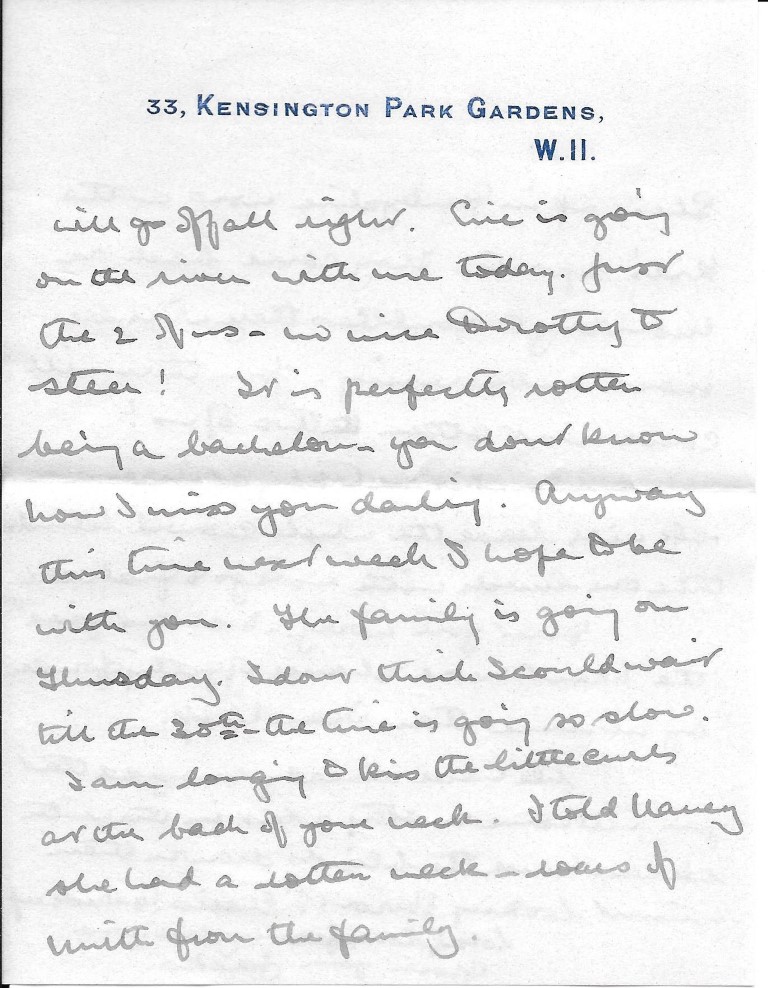 33, KENSINGTON PARK GARDENS,
W.11.
will go off all right. is going
on the river with me today. Just
the 2 of us - no nice Dorothy to
steer! It is perfectly rotten
being a bachelor - you dont know
how I miss you darling. Anyway
this time next week I hope to be
with you. The family is going on
Thursday. I dont think I could wait
till the 30th - the time is going so slow.
I am longing to kiss the little curls
at the back of your neck. I told Nancy
she had a rotten neck - roars of
mirth from the family.